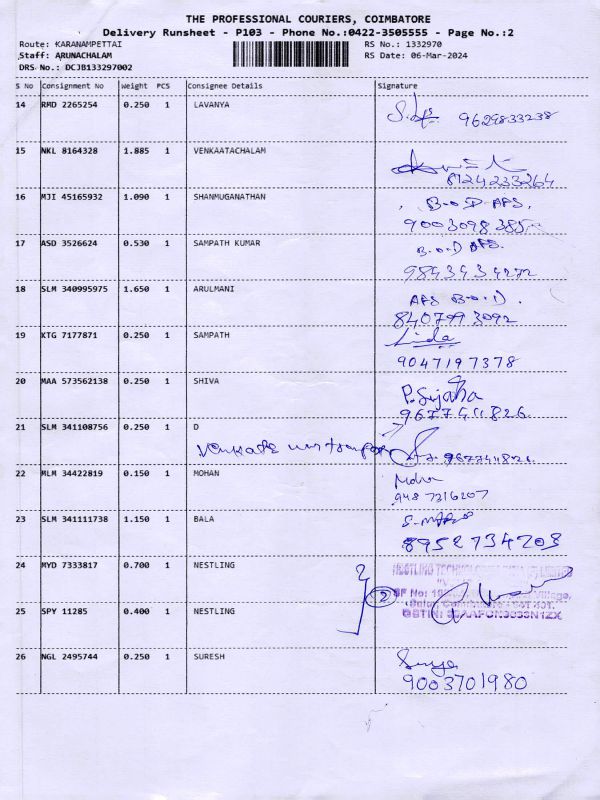 THE PROFESSIONAL COURIERS, COIMBATORE
Delivery Runsheet - P103 - Phone No.:0422-3505555 - Page No.:2
Route: KARANAMPETTAI RS No.: 1332970
Staff: ARUNACHALAM RS Date: 06-Mar-2024
DRS No.: DCJB133297002
S No Consignment No Weight PCS Consignee Details Signature
14 RMD 2265254 0.250 1 LAVANYA
9629833238
15 NKL 8164328 1.885 1 VENKAATACHALAM
8124233264
16 MJI 45165932 1.090 1 SHANMUGANATHAN
B.O.D APS.
9003098385
17 ASD 3526624 0.530 1 SAMPATH KUMAR
B.O.D APS.
9843434272
18 SLM 340995975 1.650 1 ARULMANI
APS B.O.D.
8407993092
19 KTG 7177871 0.250 1 SAMPATH
Linda
9047197378
20 MAA 573562138 0.250 1 SHIVA
P. Sujatha
9677411826
21 SLM 341108756 0.250 1 D
22 MLM 34422819 0.150 1 MOHAN
Mohan
948 7316207
23 SLM 341111738 1.150 1 BALA
8952734203
24 MYD 7333817 0.700 1 NESTLING
25 SPY 11285 0.400 1 NESTLING
2
26 NGL 2495744 0.250 1 SURESH
Surya
9003701980